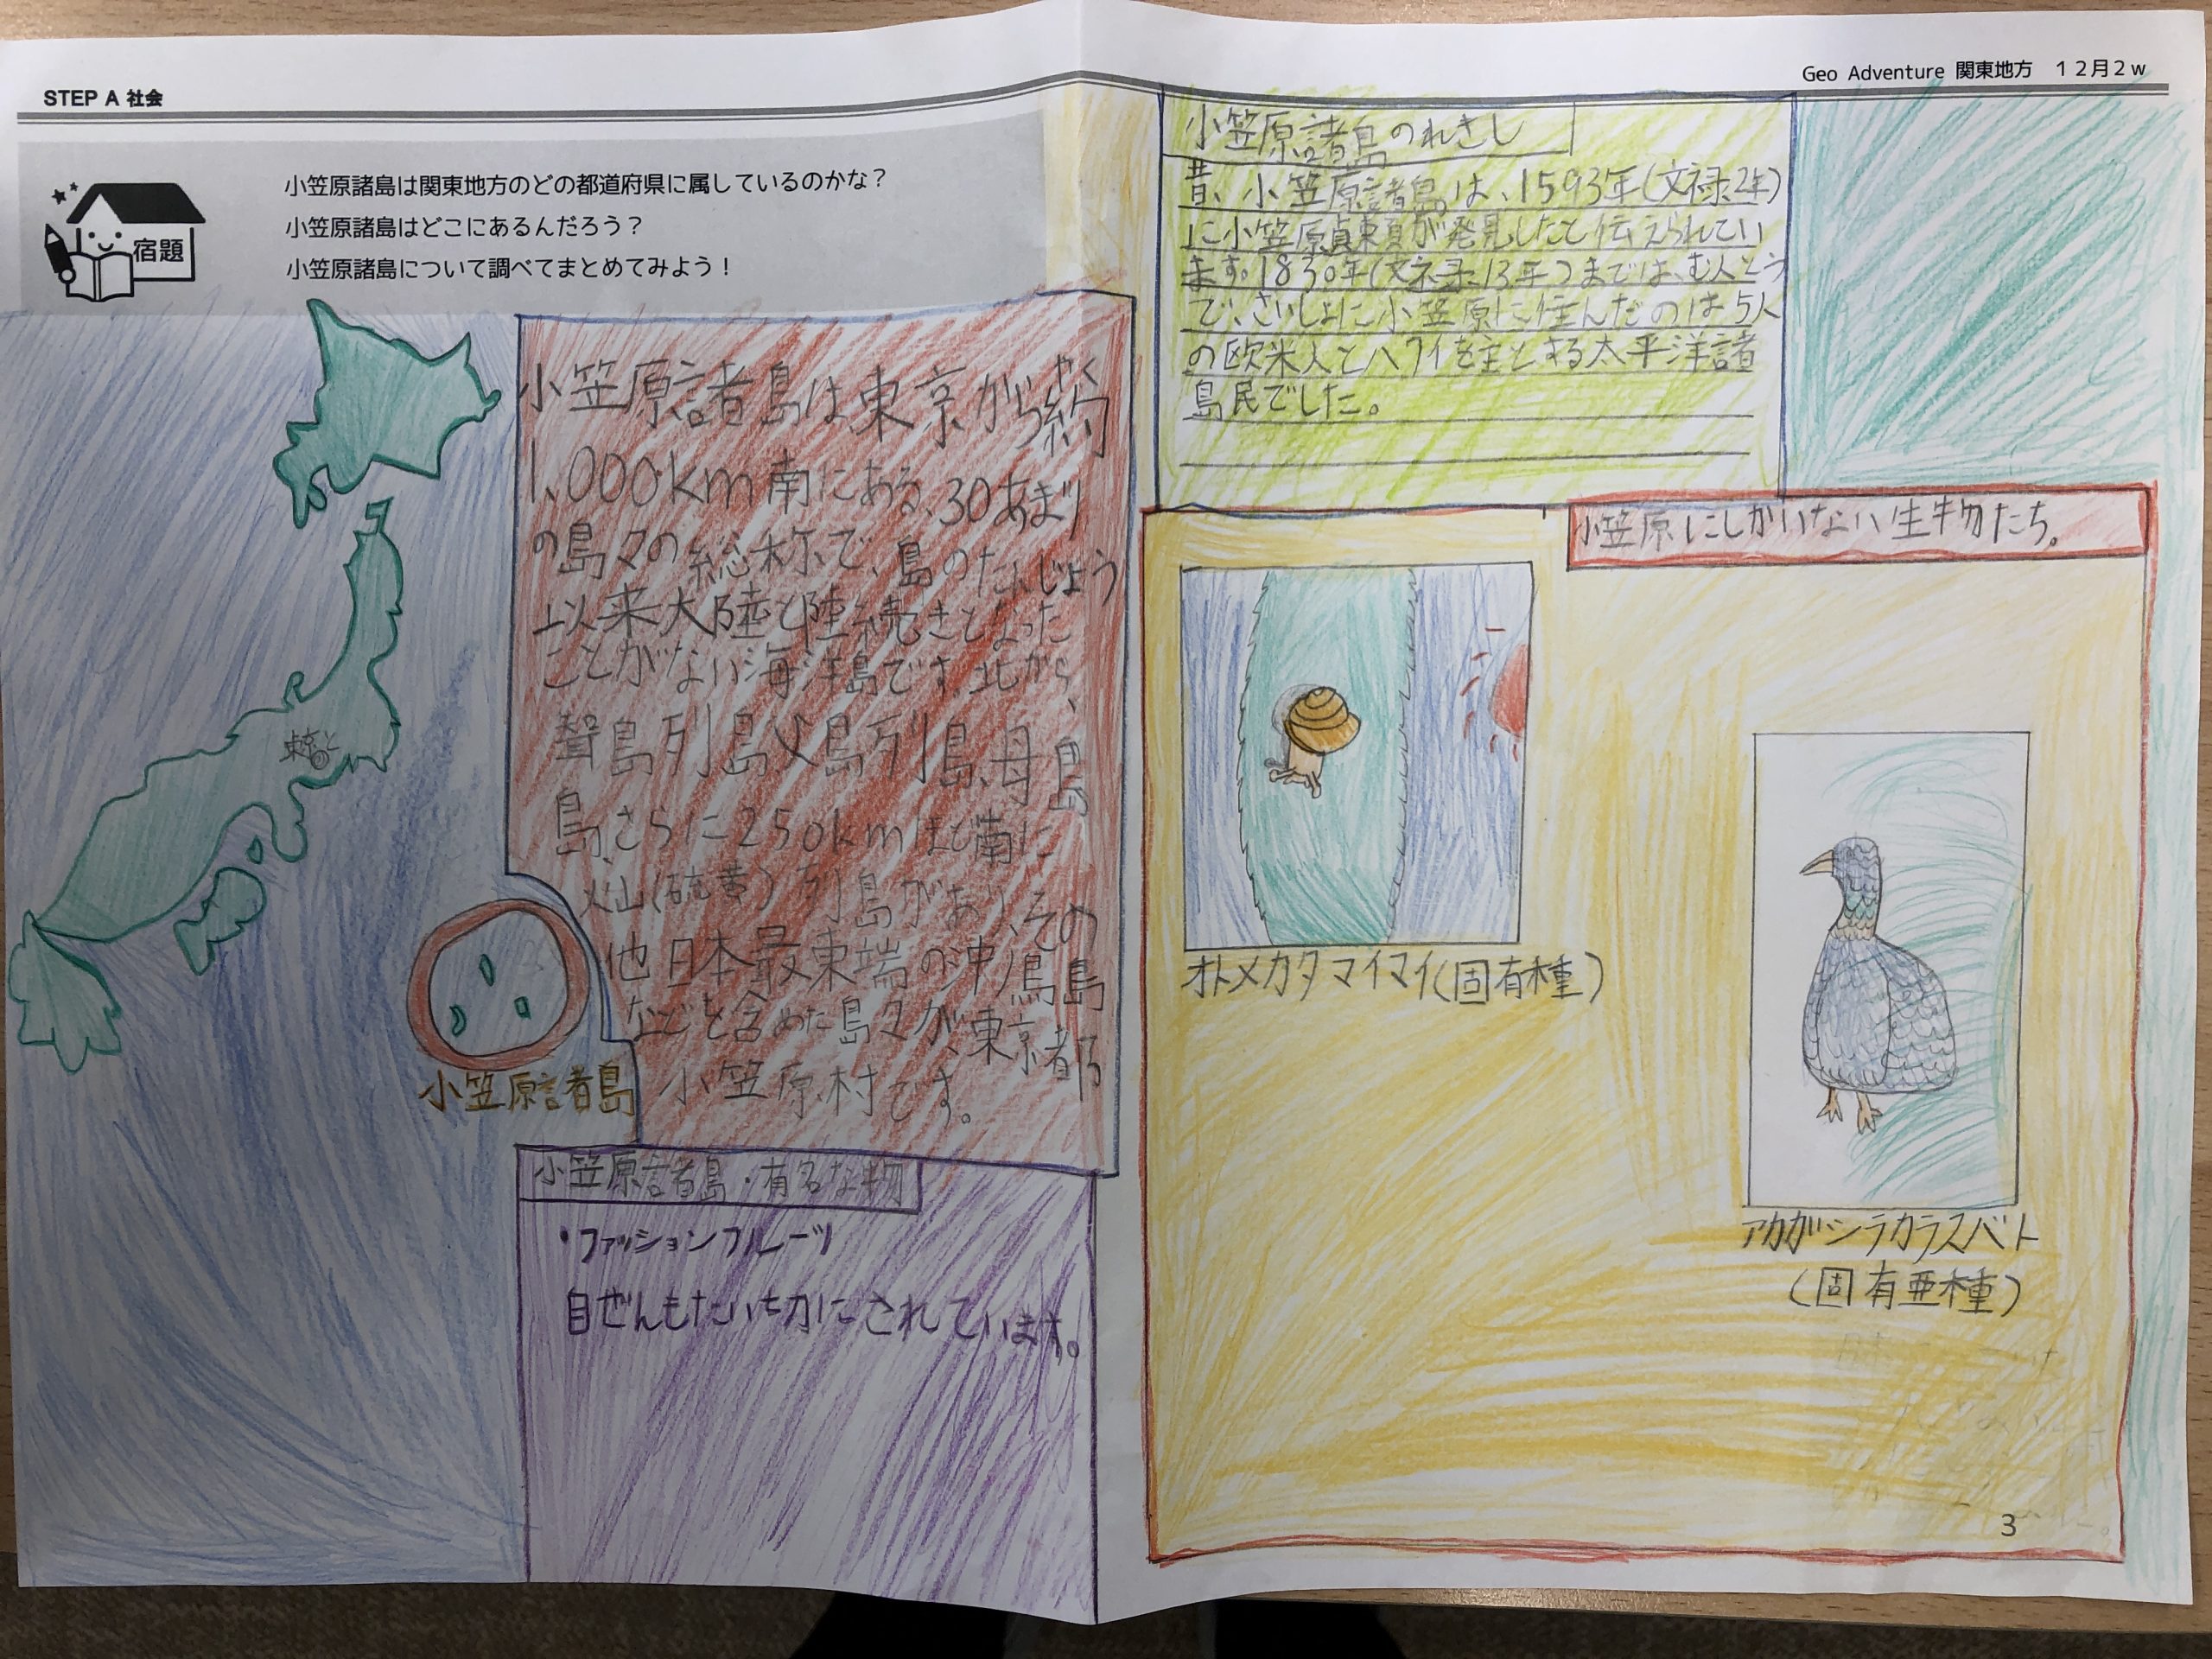 STEP A 社会
Geo Adventure 関東地方　１２月２w
宿題
小笠原諸島は関東地方のどの都道府県に属しているのかな？
小笠原諸島はどこにあるんだろう？
小笠原諸島について調べてまとめてみよう！
東京と
小笠原諸島
小笠原諸島は東京から約
やく
1,000km南にある、30あまり
の島々の総称で、島のたんじょう
以来大陸と陸続きとなった
ことがない海洋島です。北から、
聟島列島父島列島、母島
島、さらに250kmほど南に
火山(硫黄)列島があり、その
他日本最東端の沖ノ鳥島
などを含めた島々が、東京都
小笠原村です。
小笠原諸島・有名な物
・ファッションフルーツ
自ぜんもたいせつにされています。
小笠原諸島のれきし
昔、小笠原諸島は、1593年(文禄2年)
に小笠原貞頼が発見したと伝えられてい
ます。1830年(文禄13年)までは、む人とう
で、さいしょに小笠原に住んだのは5人
の欧米人とハワイを主とする太平洋諸
島民でした。
小笠原にしかいない生物たち。
オトメカタマイマイ(固有種)
アカガシラカラスバト
(固有亜種)
3